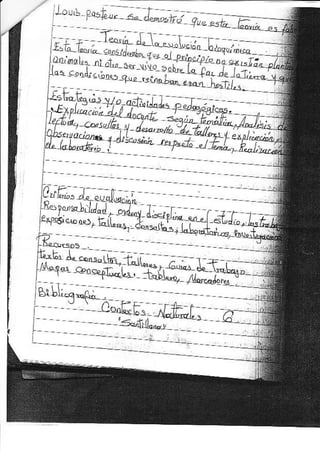 Louis Pasteur se demostró que esta Teoría es fal
Teoría de la evolución bioquímica.
Esta Teoría consideraba que al principio no existían plantas
animales ni otro ser vivo sobre la faz de la tierra y que
las condiciones que reinaban eran hostiles.
Estrategias y/o actividades pedagógicas.
Explicación del docente según temática, Análisis de
lectura, consultas y desarrollo de talleres y explicación,
Observaciones y discusión respecto el tema, Realización
de laboratorio.
Criterios de evaluación
Responsabilidad, orden y disciplina en el estudio, los traba
exposiciones, talleres, consultas, laboratorios, investigacion
Recursos
textos de consultas, talleres, Guías de Trabajo
Mapas conceptuales, tablero, Marcadores
Bibliografía
Contextos Naturales 6
"Santillana"